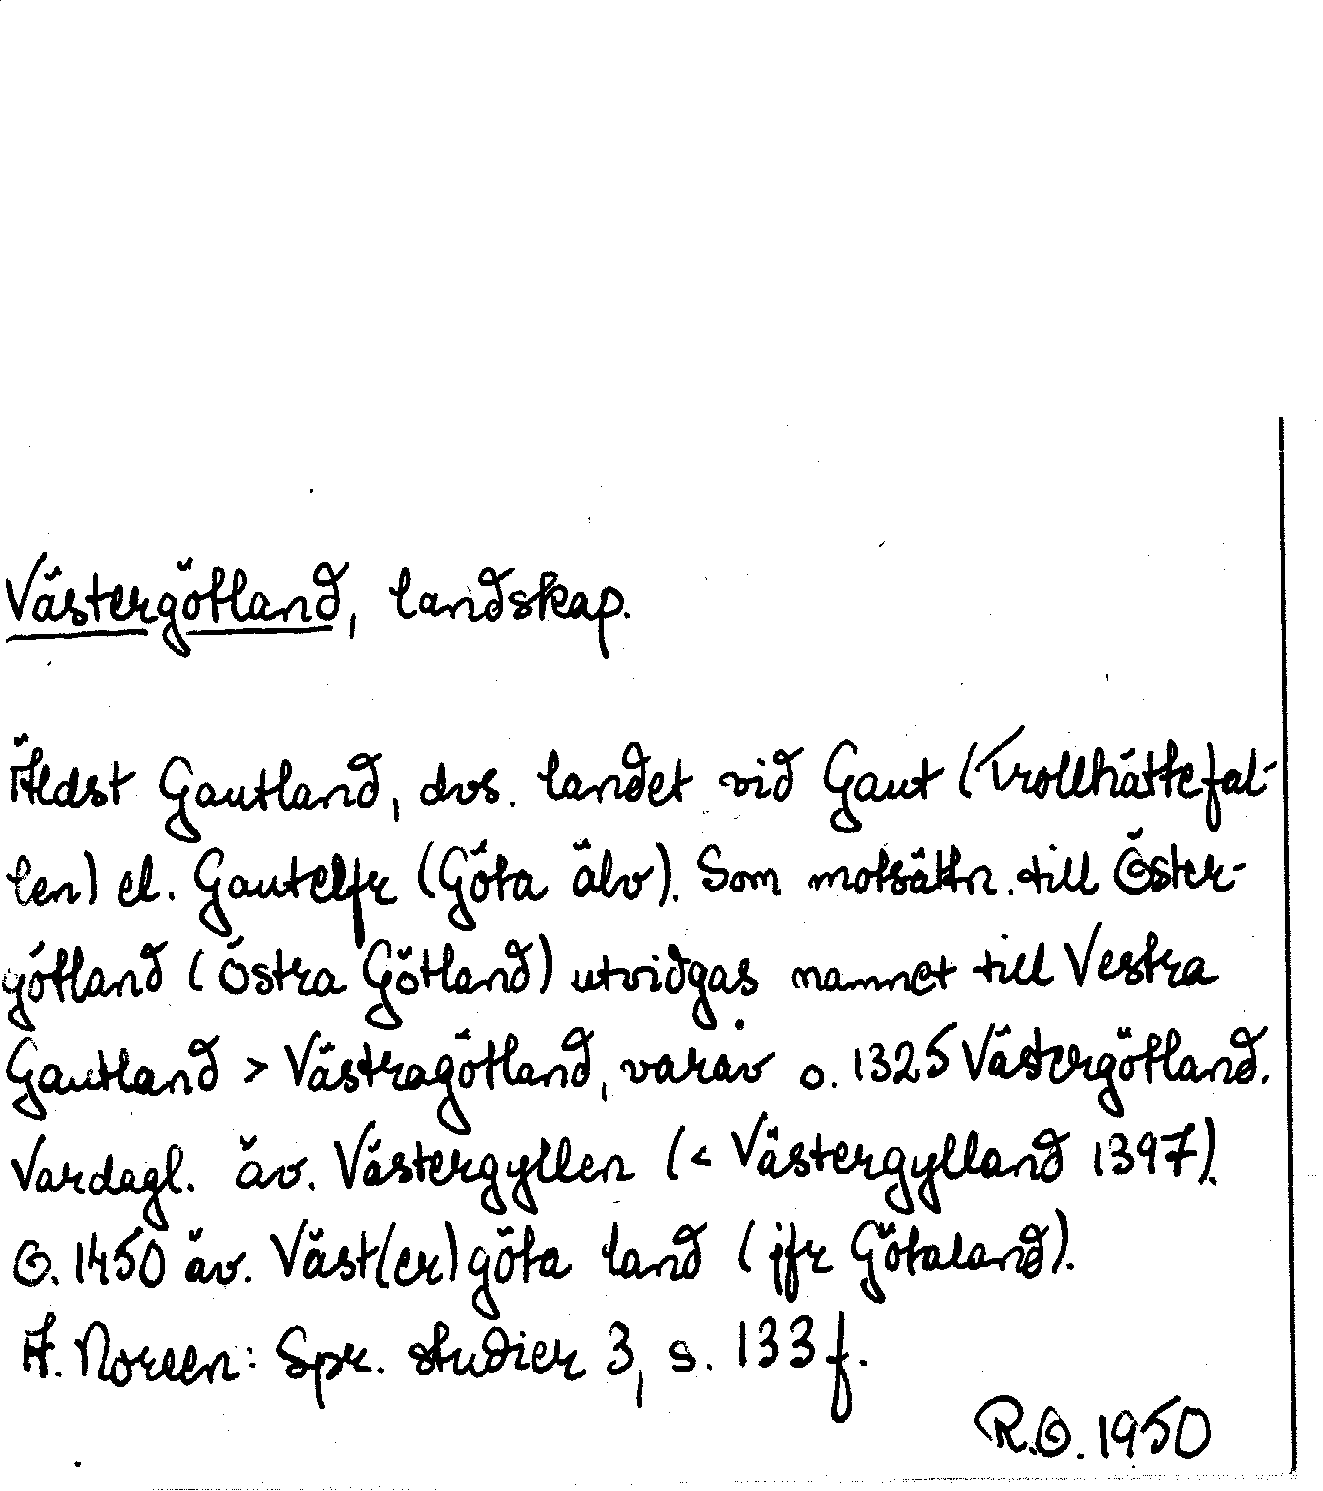 Västergötland, landskap.
Äldst Gautland, dvs. landet vid Gaut (Trollhättefal-
len) el. Gautelfr (Göta älv). Som motsättn. till Öster-
götland (Östra Götland) utvidgas namnet till Vestra
Gautland > Västragötland, varav o. 1325 Västergötland.
Vardagl. äv. Västergyllen (< Västergylland 1397).
O. 1450 äv. Väst(er)göta land (jfr Götaland).
A. Noreen: Spr. studier 3, s. 133 f.
R.O. 1950